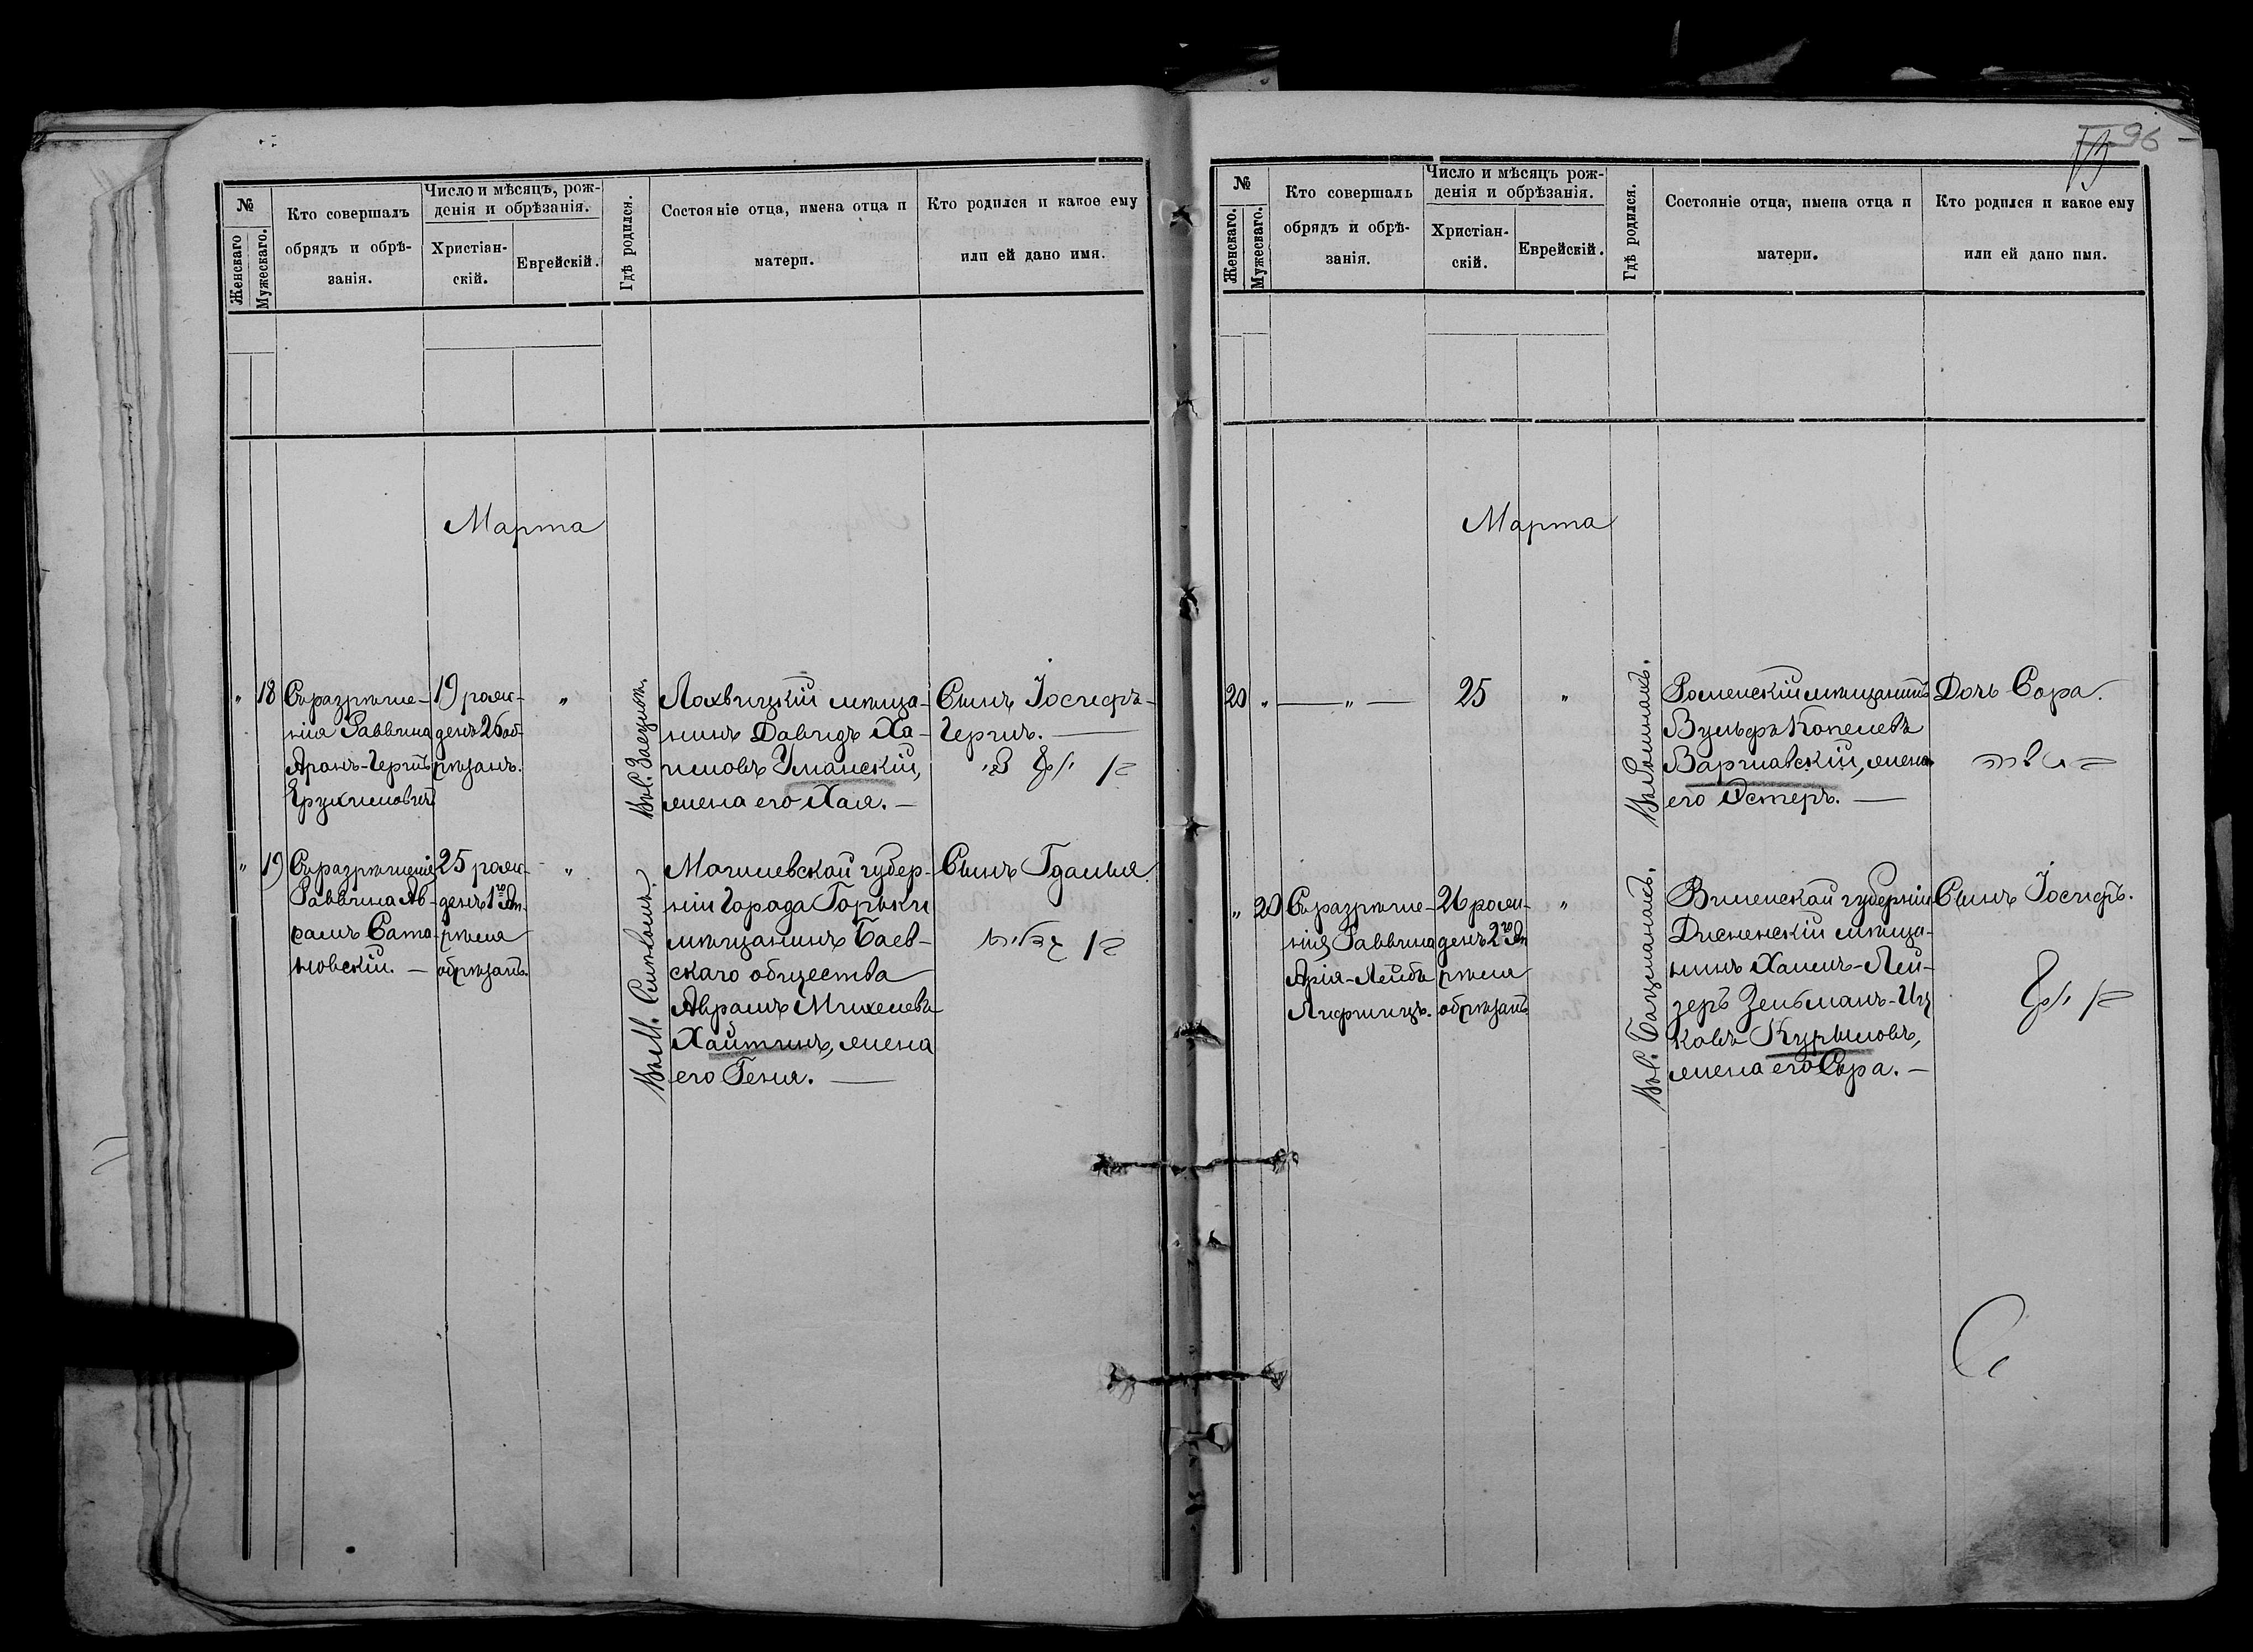 №
Женскаго
Мужескаго.
Кто совершалъ
обрядъ и обрѣ-
занія.
Число и мѣсяцъ, рож-
денія и обрѣзанія.
Христіан-
скій.
Еврейскій.
Гдѣ родился.
Состояніе отца, имена отца и
матери.
Кто родился и какое ему
или ей дано имя.
Марта
" 18
Съ разрѣше-
нія Раввина
Аронъ-Гершъ
19 рож-
денъ 26 об-
рѣзанъ.
"
Лохвицкій мѣща-
нинъ Давидъ Ха-
имовъ Уманскій,
жена его Хая. —
Сынъ Іосифъ-
Гершъ. —
בן
" 19
Съ разрѣшенія
Раввина Ав-
рамъ Сата-
новскій. —
25 рож-
денъ 1го Ап-
рѣля
обрѣзанъ.
"
Могилевской губер-
ніи Города Горыки
мѣщанинъ Баев-
скаго общества
Абрамъ Михелевъ
Хайтинъ, жена
его Геня. —
Сынъ Гдалья
בן גדלי'
96
№
Женскаго.
Мужескаго.
Кто совершалъ
обрядъ и обрѣ-
занія.
Число и мѣсяцъ рож-
денія и обрѣзанія.
Христіан-
скій.
Еврейскій.
Гдѣ родился.
Состояніе отца, имена отца и
матери.
Кто родился и какое ему
или ей дано имя.
Марта
20 "
— " —
25
"
Въ Ромнахъ.
Роменскій мѣщанинъ
Вульфъ Копелевъ
Варшавскій, жена
его Эстеръ. —
Дочь Сора.
" 20
Съ разрѣше-
нія Раввина
Арія-Лейбъ
Лифшицъ.
26 рож-
денъ 2го Ап
рѣля
обрѣзанъ
"
Виленской губерніи
Дисненскій мѣща-
нинъ Хаимъ-Лей-
зеръ Зельманъ-Иц
ковъ Курымовъ,
жена его Сора. —
Сынъ Іосифъ.
בן